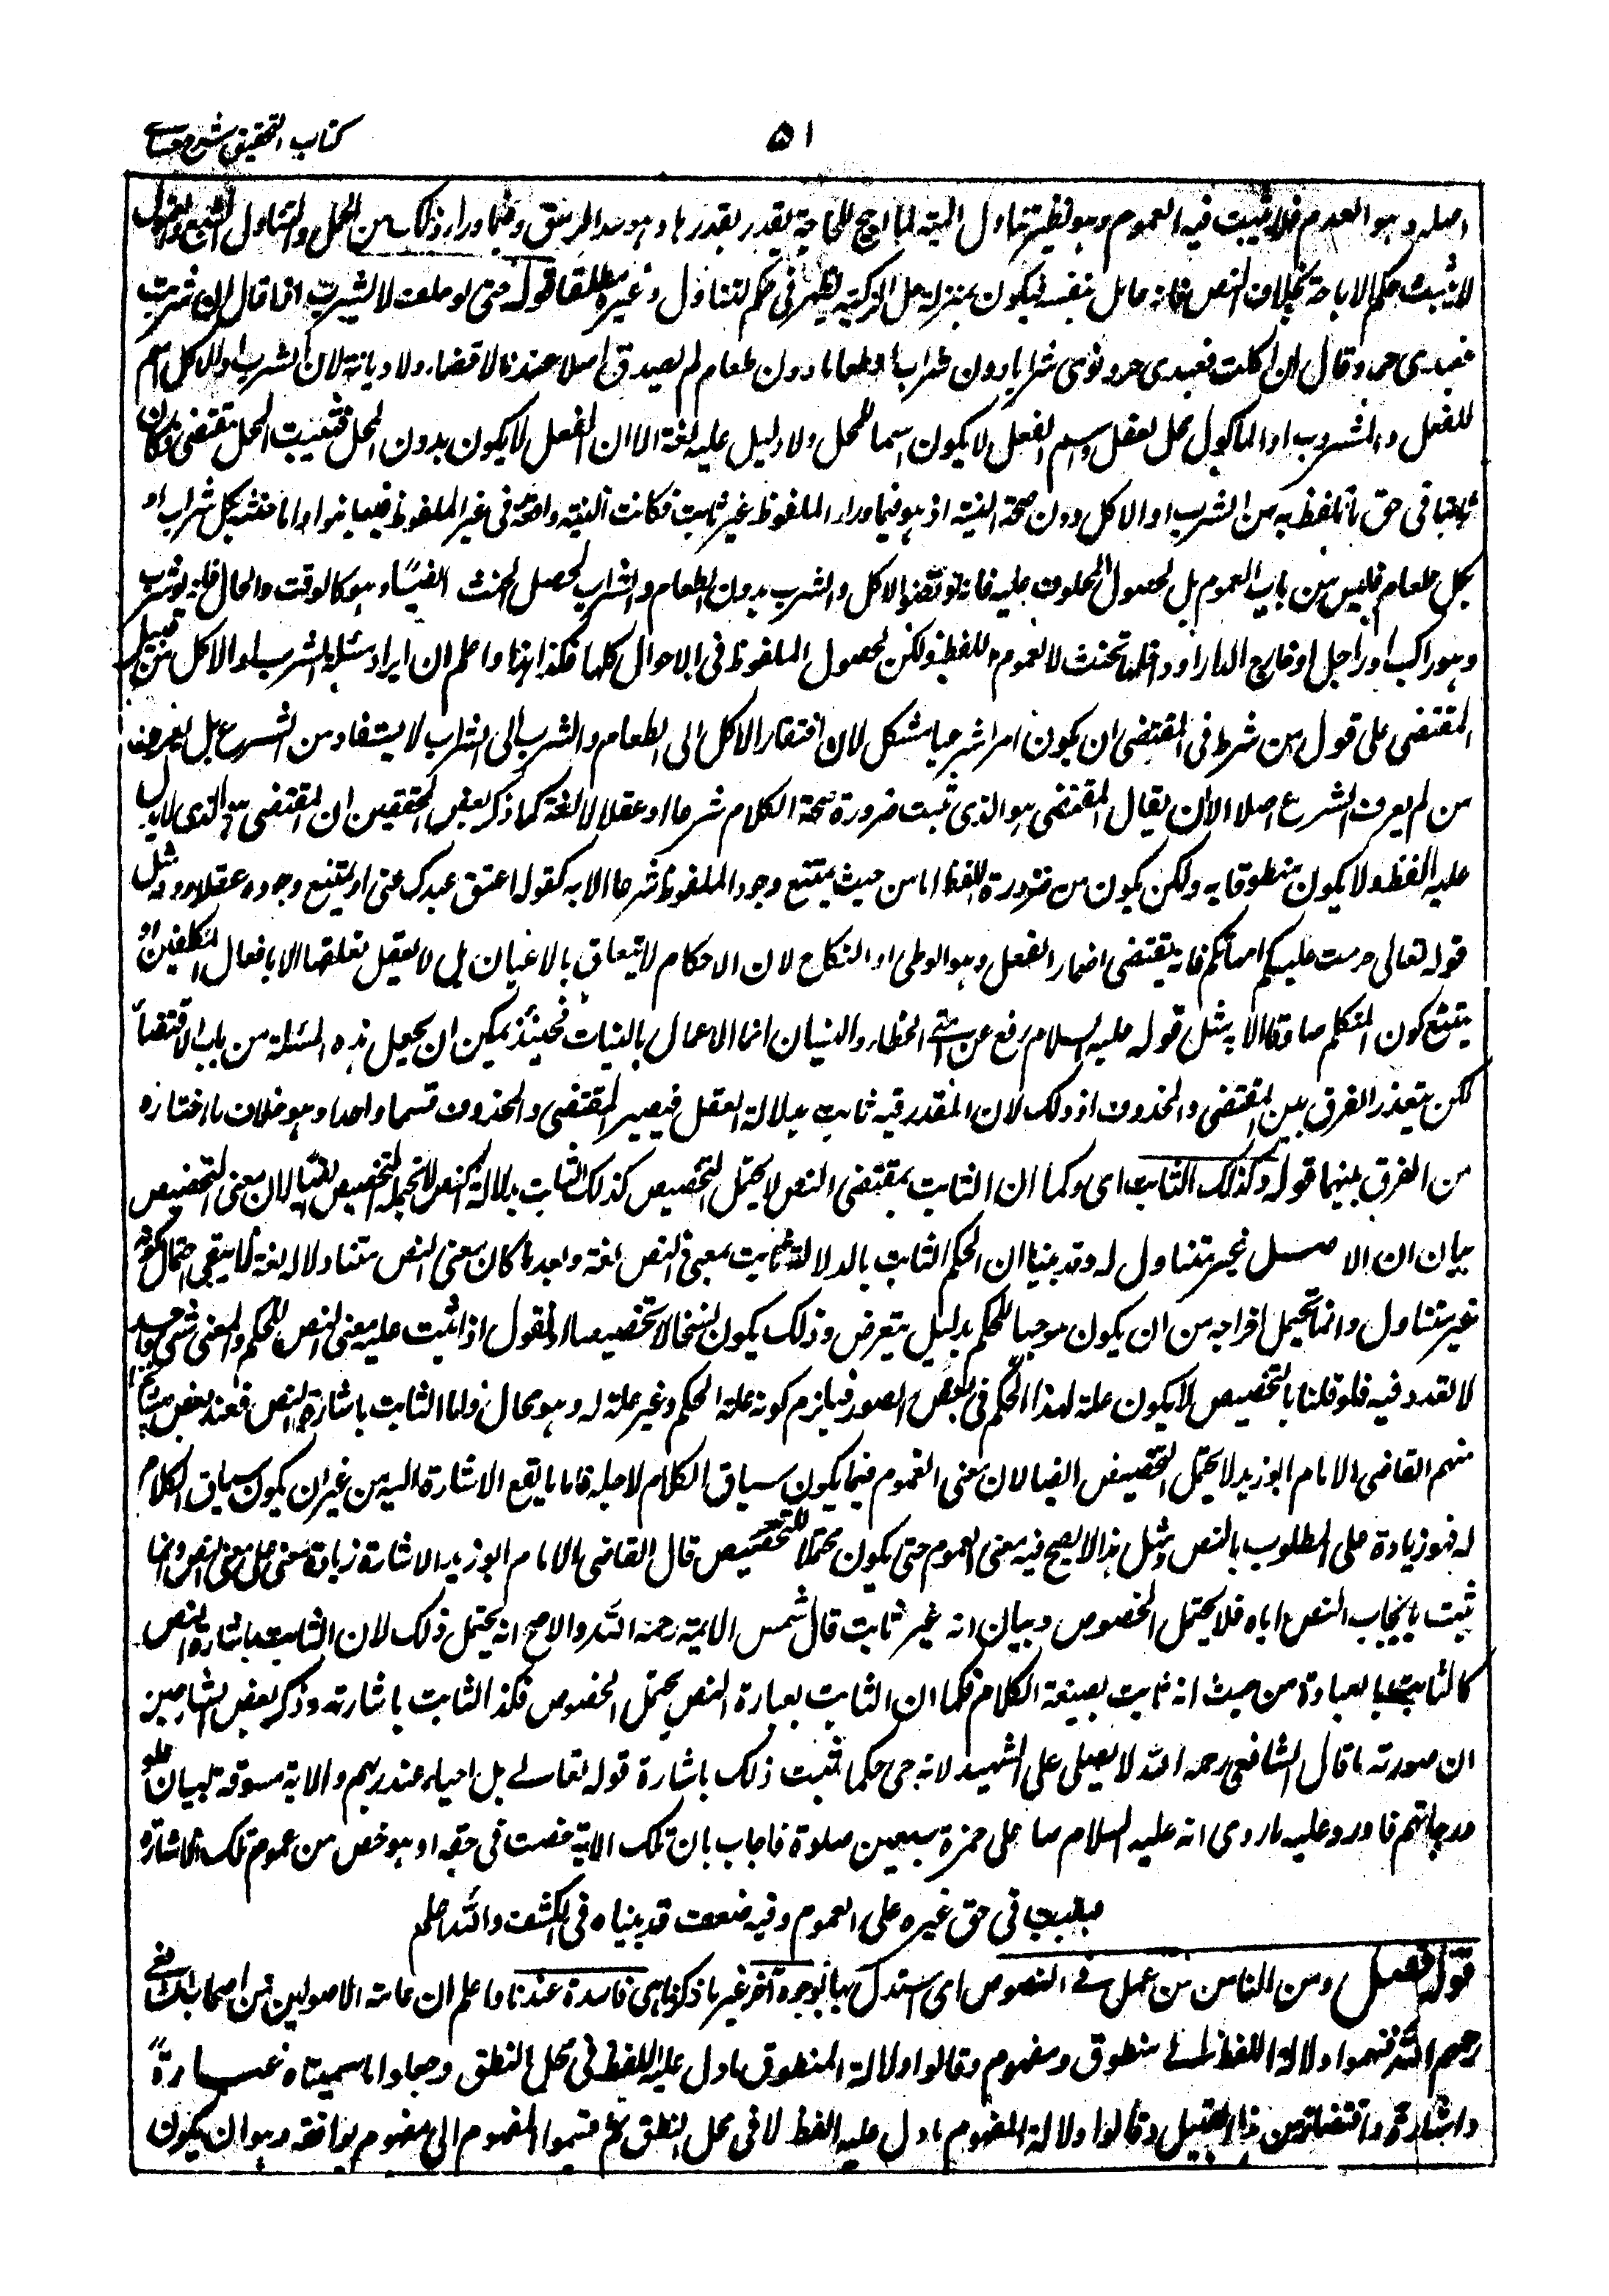 كتاب التحقيق شرح حسامي
٥١
اصله وهو العموم فلا يثبت فيه العموم وهو نظير تناول الميتة لما ابيح للحاجة يقدر بقدرها وهو سد الرمق وفيما وراء ذلك من الحمل والتناول الى الشبع
لا يثبت حكم الاباحة بخلاف النص فانه عامل بنفسه فيكون بمنزلة حل الذكية يظهر فى حكم التناول وغيره مطلقا قوله حتى لو حلف لا يشرب اذا قال ان شربت
فعبدى حر وقال ان اكلت فعبدى حر ونوى شرابا دون شراب او طعاما دون طعام لم يصدق اصلا عندنا لا قضاء ولا ديانة لان الشرب والاكل اسم
للفعل والمشروب او الماكول محل الفعل واسم الفعل لا يكون اسما للمحل ولا دليل عليه لغة الا ان الفعل لا يكون بدون المحل فيثبت المحل مقتضى فكان
ثابتا فى حق ما تلفظ به من الشرب او الاكل دون صحة النية اذ هو فيما وراء الملفوظ غير ثابت فكانت النية واقعة فى غير الملفوظ فيلغوا واما حنثه بكل شراب او
بكل طعام فليس من باب العموم بل لحصول المحلوف عليه فانه لو تصور الاكل والشرب بدون الطعام والشراب لحصل الحنث ايضا وهو كالوقت والحال فانه لو شرب
وهو راكب او راجل او خارج الدار او داخلها تحنث لا لعموم اللفظ ولكن لحصول الملفوظ فى الاحوال كلها فكذا هنا واعلم ان ايراد مسئلة الشرب او الاكل من قبيل
المقتضى على قول من شرط فى المقتضى ان يكون امرا شرعيا مشكل لان افتقار الاكل الى الطعام والشرب الى الشراب لا يستفاد من الشرع بل يعرفه
من لم يعرف الشرع اصلا الا ان يقال المقتضى هو الذى ثبت ضرورة صحة الكلام شرعا او عقلا لا لغة كما ذكر بعض المحققين ان المقتضى هو الذى لا يدل
عليه اللفظ ولا يكون منطوقا به ولكن يكون من ضرورة اللفظ اما من حيث يمتنع وجود الملفوظ شرعا الا به كقوله اعتق عبدك عنى او يمتنع وجوده عقلا دونه مثل
قوله تعالى حرمت عليكم امهاتكم فانه يقتضى اضمار الفعل وهو الوطى او النكاح لان الاحكام لا تتعلق بالاعيان بل لا يعقل تعلقها الا بافعال المكلفين او
يمتنع كون المتكلم صادقا الا به مثل قوله عليه السلام رفع عن امتى الخطاء والنسيان انما الاعمال بالنيات فحينئذ يمكن ان يجعل هذه المسئلة من باب الاقتضاء
لكن يتعذر الفرق بين المقتضى والمحذوف اذ ذلك لان المقدر فيه ثابت بدلالة العقل فيصير المقتضى والمحذوف قسما واحدا وهو خلاف ما اختاره
من الفرق بينهما قوله وكذلك الثابت اى وكما ان الثابت بمقتضى النص لا يحتمل التخصيص كذلك الثابت بدلالة النص لا يحتمل التخصيص ايضا لان معنى التخصيص
بيان ان الاصل غير متناول له وقد بينا ان الحكم الثابت بالدلالة ثابت بمعنى النص لغة وبعد ما كان معنى النص متناولا له لغة لا يبقى احتمال كونه
غير متناول وانما تحتمل اخراجه من ان يكون موجبا للحكم بدليل يتعرض وذلك يكون نسخا لا تخصيصا او نقول اذا ثبت علية معنى النص للحكم والمعنى شئ واحد
لا تعدد فيه فلو قلنا بالتخصيص لا يكون علة لهذا الحكم فى بعض الصور فيلزم كونه علة الحكم وغير علة له وهو محال واما الثابت باشارة النص فعند بعض مشايخنا
منهم القاضى الامام ابو زيد لا يحتمل التخصيص ايضا لان معنى العموم فيما يكون سياق الكلام لاجله فاما ما يقع الاشارة اليه من غير ان يكون سياق الكلام
له فهو زيادة على المطلوب بالنص ومثل هذا لا يصح فيه معنى العموم حتى يكون محتملا للتخصيص قال القاضى الامام ابو زيد الاشارة زيادة معنى على معنى النص وانما
ثبت بايجاب النص اياه فلا يحتمل الخصوص وبيان انه غير ثابت قال شمس الائمة رحمه الله والاصح انه يحتمل ذلك لان الثابت باشارة النص
كالثابت بالعبارة من حيث انه ثابت بصيغة الكلام فكما ان الثابت بعبارة النص يحتمل الخصوص فكذا الثابت باشارته وذكر بعض الشارحين
ان صورته ما قال الشافعى رحمه الله لا يصلى على الشهيد لانه حى حكما ثبت ذلك باشارة قوله تعالى بل احياء عند ربهم والاية مسوقة لبيان علو
درجاتهم فاورد عليه ما روى انه عليه السلام صلى على حمزة سبعين صلوة فاجاب بان تلك الاية خصت فى حقه او هو خص من عموم تلك الاشارة
فبقيت فى حق غيره على العموم وفيه ضعف قد بيناه فى الكشف والله اعلم
قوله فصل ومن الناس من عمل فى النصوص اى استدل بها بوجوه اخر غير ما ذكرنا هى فاسدة عندنا واعلم ان عامة الاصوليين من اصحاب الشافعى
رحمهم الله قسموا دلالة اللفظ الى منطوق ومفهوم وقالوا دلالة المنطوق ما دل عليه اللفظ فى محل النطق وجعلوا ما سميناه عبارة
واشارة واقتضاء من هذا القبيل وقالوا دلالة المفهوم ما دل عليه اللفظ لا فى محل النطق ثم قسموا المفهوم الى مفهوم يوافقه وهو ان يكون